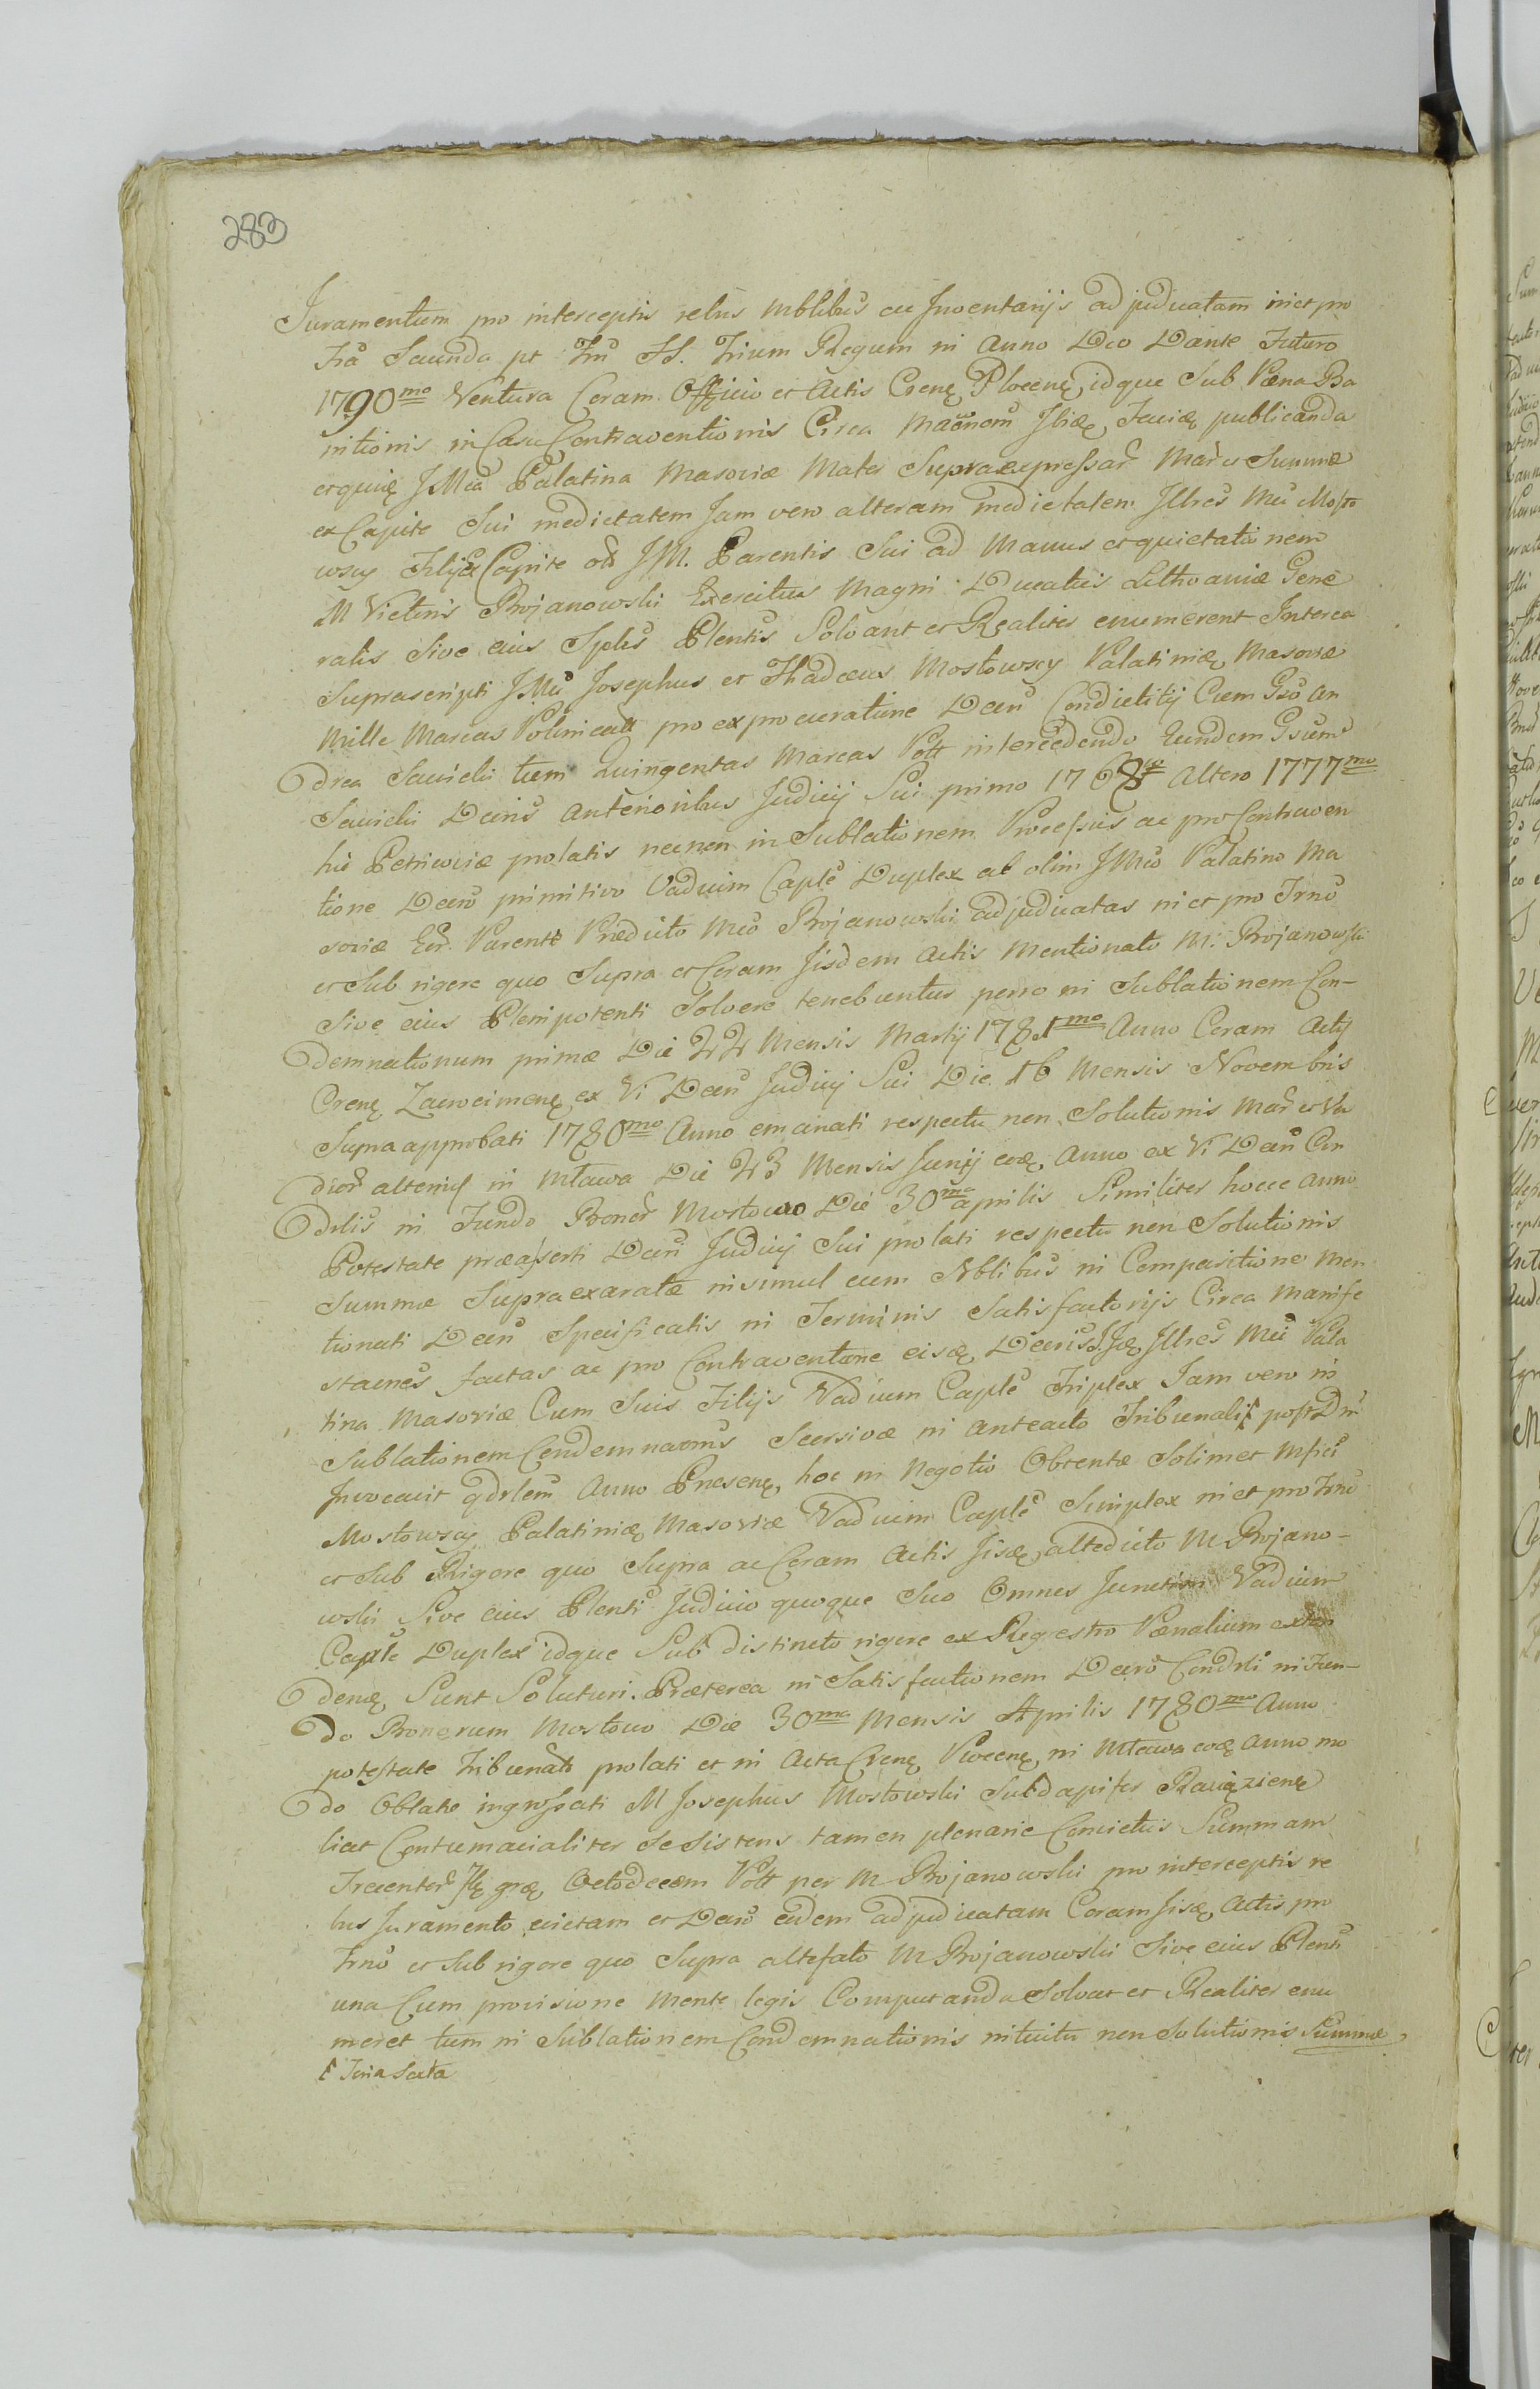 283
Juramentum pro interceptis rebus mblibus ac Inventarijs adjudicatam inet pro
Fra Secunda pt Fm SS. Trium Regum in Anno Deo Dante Futuro
1790mo Ventura Coram Officio et Actis Crenę Plocenę, idque Sub Pœna Ba
nitionis in Casu Contraventionis Circa publicanda
Palatina Masoviæ Mater Supraexpressar Mar et Summæ
ex Capite Sui medietatem Jam vero alteram medietatem Illres Mci Mosto
wscy Filij ex Capite J M. Parentis Sui ad Manus et quietationem
M Victoris Bojanowski Exercitus Magni Ducatus Lithvaniæ Gene
ralis Sive eius Splis Plentis Solvant et Realiter enumerent Interea
Suprascripti JMci Josephus et Thadeus Mostowscy Palatinię Masoviæ
Mille Marcas Polinicall pro exprocuratione Decri Condictitij Cum Gso An
drea Sawicki tum Quingentas Marcas Poll intercedendo Eundem Gsum
Sawicki Decris anterioribus Judicij Sui primo 1768vo Altero 1777mo
hic Petricoviæ prolatis necnon in Sublationem Processus ac pro Contraven
tione Decro primitivo Vadium Caple Duplex ab olim JMco Palatino Ma
soviæ Eor. Parente Prædicto Mco Bojanowski adjudicatas inet pro Frno
et Sub rigore quo Supra et Coram Jisdem Actis Mentionato M. Bojanowski
Sive eius Plenipotenti Solvere tenebuntur porro in Sublationem Con-
demnationum primæ Die 22 Mensis Martij 1781mo Anno Coram Actis
Crenę Zacrocimenę ex Vi Decri Judicij Sui Die 16 Mensis Novembris
Supra approbati 1780mo Anno emanati respectu non Solutionis Mar et Va
dior alterius in Mława Die 23 Mensis Junij eoę Anno ex Vi Decri Con
drlis in Fundo Bonor Mostowo Die 30ma Aprilis Similiter hocce anno
Potestate præasserti Decri Judicij Sui prolati respectu non Solutionis
Summæ Supraexaratæ insimul cum Mblibus in Comparitione Men
tionati Decri Specificatis in Terminis Satisfactorijs Circa Manife
stacnes factas ac pro Contraventione eisdę Decris Illres Mci Pala
tina Masoviæ Cum Suis Filijs Vadium Caple Triplex Jam vero in
Sublationem Condemnaonis Scorsivæ in Anteacto Tribunali post Dm
Invocavit qdrlem Anno Præsenę hoc in Negotio Obtentæ Solimet
Mostowscy Palatinię Masoviæ Vadium Caple Simplex inet pro Frno
et Sub Rigore quo Supra ac Coram Actis Jisdę altedicto M Bojano-
wski Sive eius Plenti Judicio quoque Suo Omnes Junctim Vadium
Caple Duplex idque Sub distincto rigore ex Regestro Pœnalium exten
denę Sunt Soluturi. Præterea in Satisfactionem Decro Condrli in Fun-
do Bonorum Mostowo Die 30ma Mensis Aprilis 1780mo Anno
potestate Tribunali prolati et in Acta Crenę Plocenę in Mława eoę Anno mo
do Oblatæ ingrossati M Josephus Mostowski Subdapifer
licet Contumacialiter Se Sistens tamen plenarie Convictus Summam
Trecentor Flę grę Octodecem Poll per M Bojanowski pro interceptis re
bus Juramento evictam et Decro eodem adjudicatam Coram Jisdę Actis pro
Frno et Sub rigore quo Supra altefato M Bojanowski Sive eius Plenti
una Cum provisione Mente legis Computanda Solvat et Realiter enu
meret tum in Sublationem Condemnationis intuitu non Solutionis Summæ
Feria Sexta